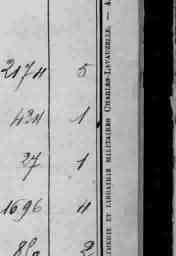 2174 5
424 1
27 1
1696 4
2
IMPRIMERIE ET LIBRAIRIE MILITAIRES CHARLES-LAVAUZELLE. —